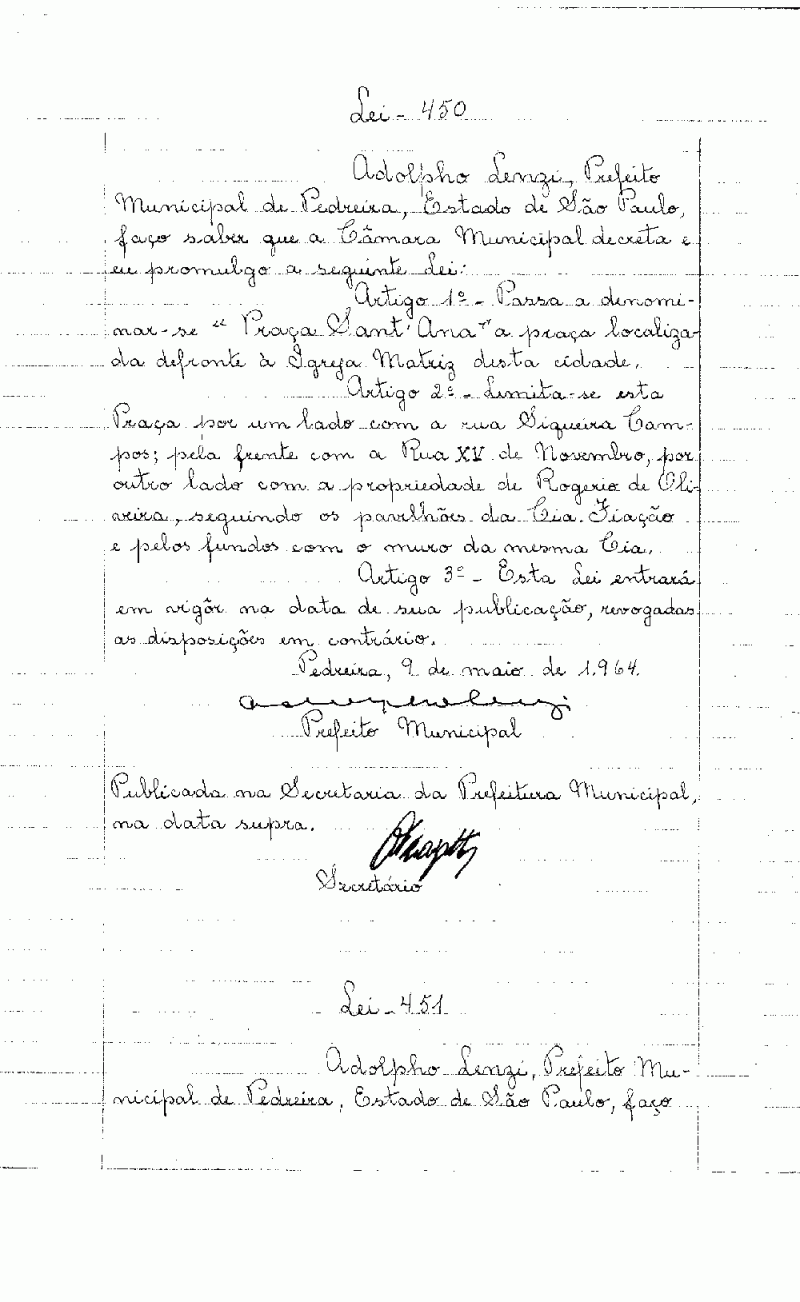 Lei - 450
Adolpho Lenzi, Prefeito
Municipal de Pedreira, Estado de São Paulo,
faço saber que a Câmara Municipal decreta e
eu promulgo a seguinte Lei:
Artigo 1º - Passa a denomi-
nar-se "Praça Sant'Ana" a praça localiza-
da defronte à Igreja Matriz desta cidade.
Artigo 2º - Limita-se esta
Praça por um lado com a rua Siqueira Cam-
pos; pela frente com a Rua XV de Novembro, por
outro lado com a propriedade de Rogerio de Oli-
veira, seguindo os pavilhões da Cia. Fiação
e pelos fundos com o muro da mesma Cia.
Artigo 3º - Esta Lei entrará
em vigôr na data de sua publicação, revogadas
as disposições em contrário.
Pedreira, 9 de maio de 1.964.
Prefeito Municipal
Publicada na Secretaria da Prefeitura Municipal,
na data supra.
Secretário
Lei - 451
Adolpho Lenzi, Prefeito Mu-
nicipal de Pedreira, Estado de São Paulo, faço